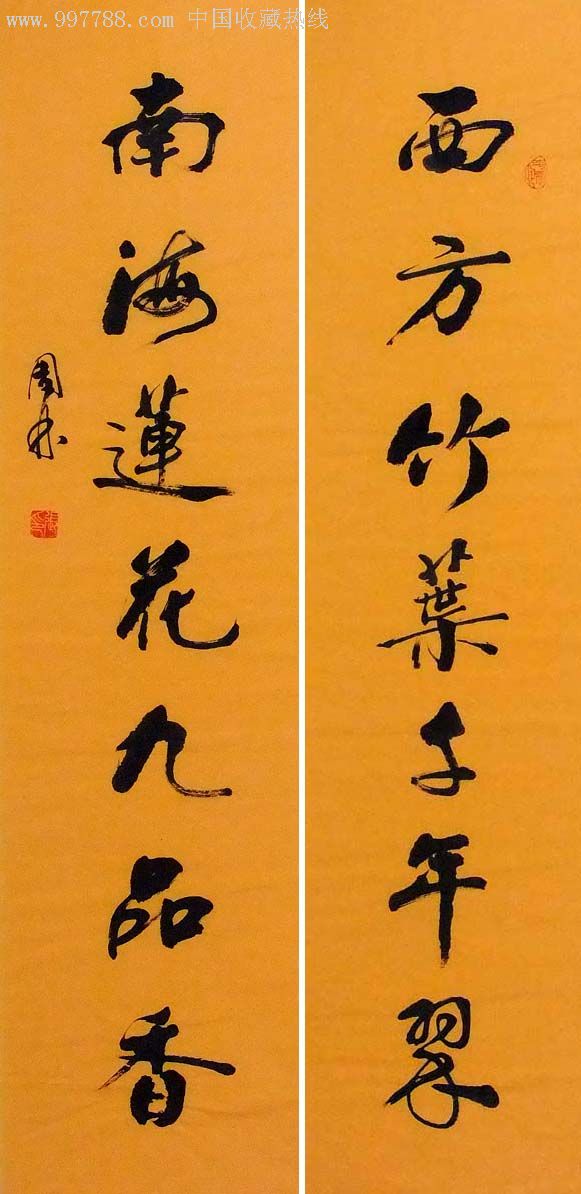 www.997788.com 中国收藏热线
西方竹葉千年翠
南海蓮花九品香